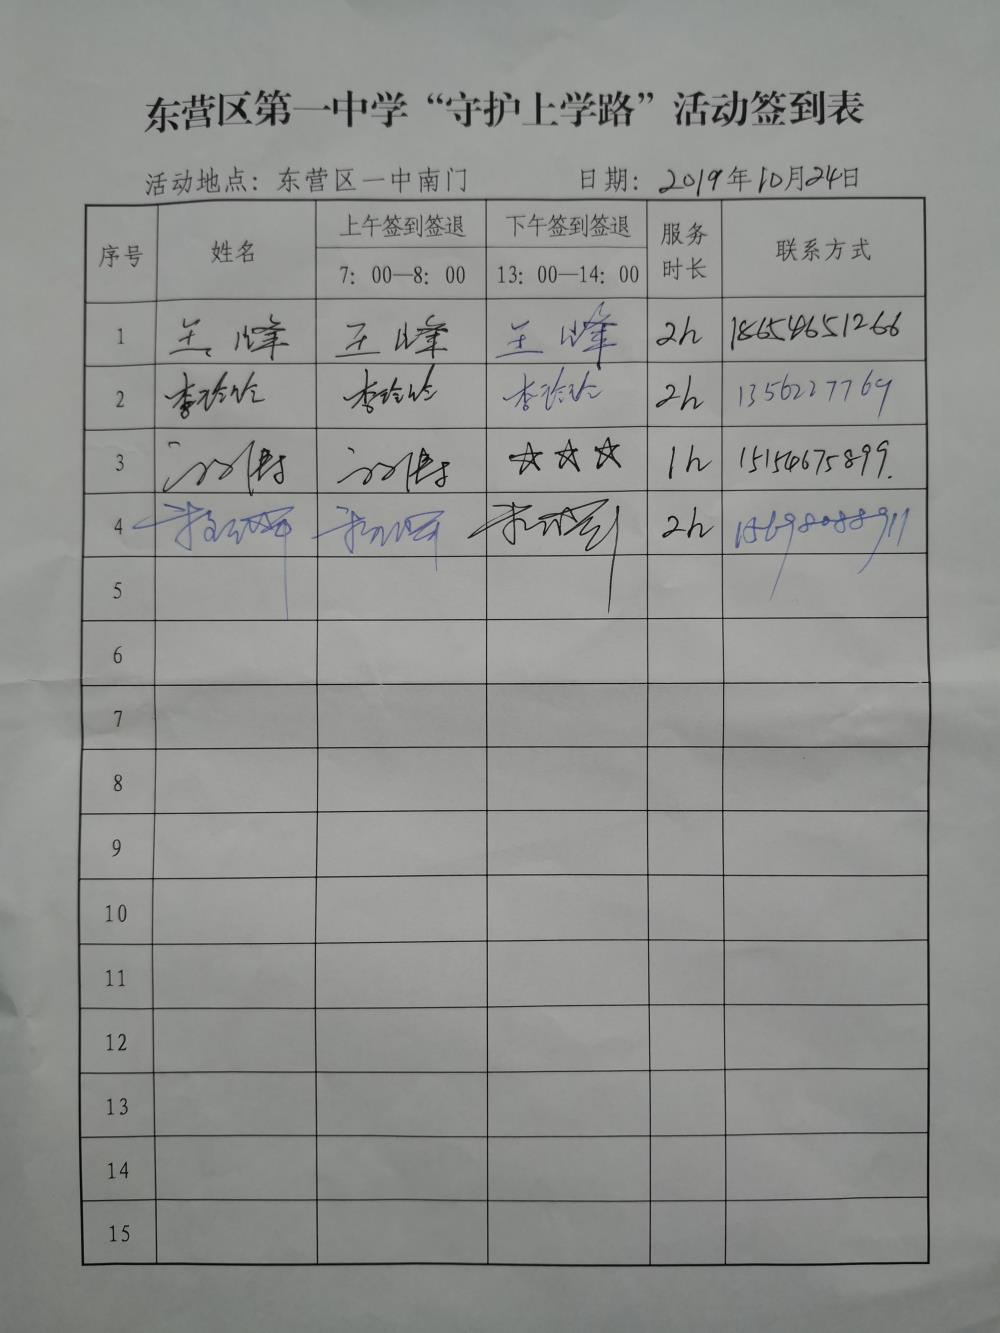 东营区第一中学“守护上学路”活动签到表
活动地点：东营区一中南门 日期：2019年10月24日
序号 姓名 上午签到签退 下午签到签退 服务时长 联系方式
7：00—8：00 13：00—14：00
1 王峰 王峰 王峰 2h 18654651266
2 李玲玲 李玲玲 李玲玲 2h 1356227769
3 ☆☆☆ 1h 15154675899.
4 2h
5
6
7
8
9
10
11
12
13
14
15